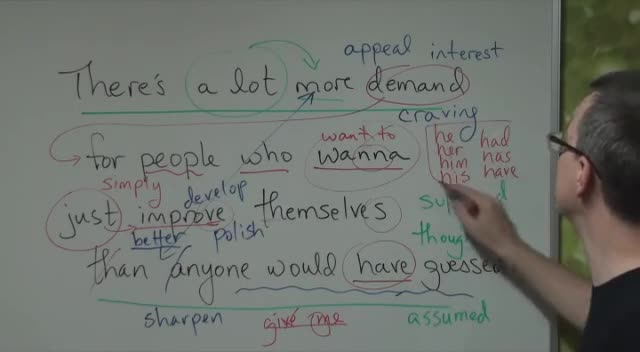 appeal interest
There's a lot more demand
craving
want to
for people who wanna
he had
her has
him have
his
simply develop
just improve themselves
better polish
than anyone would have guessed
sharpen give me assumed